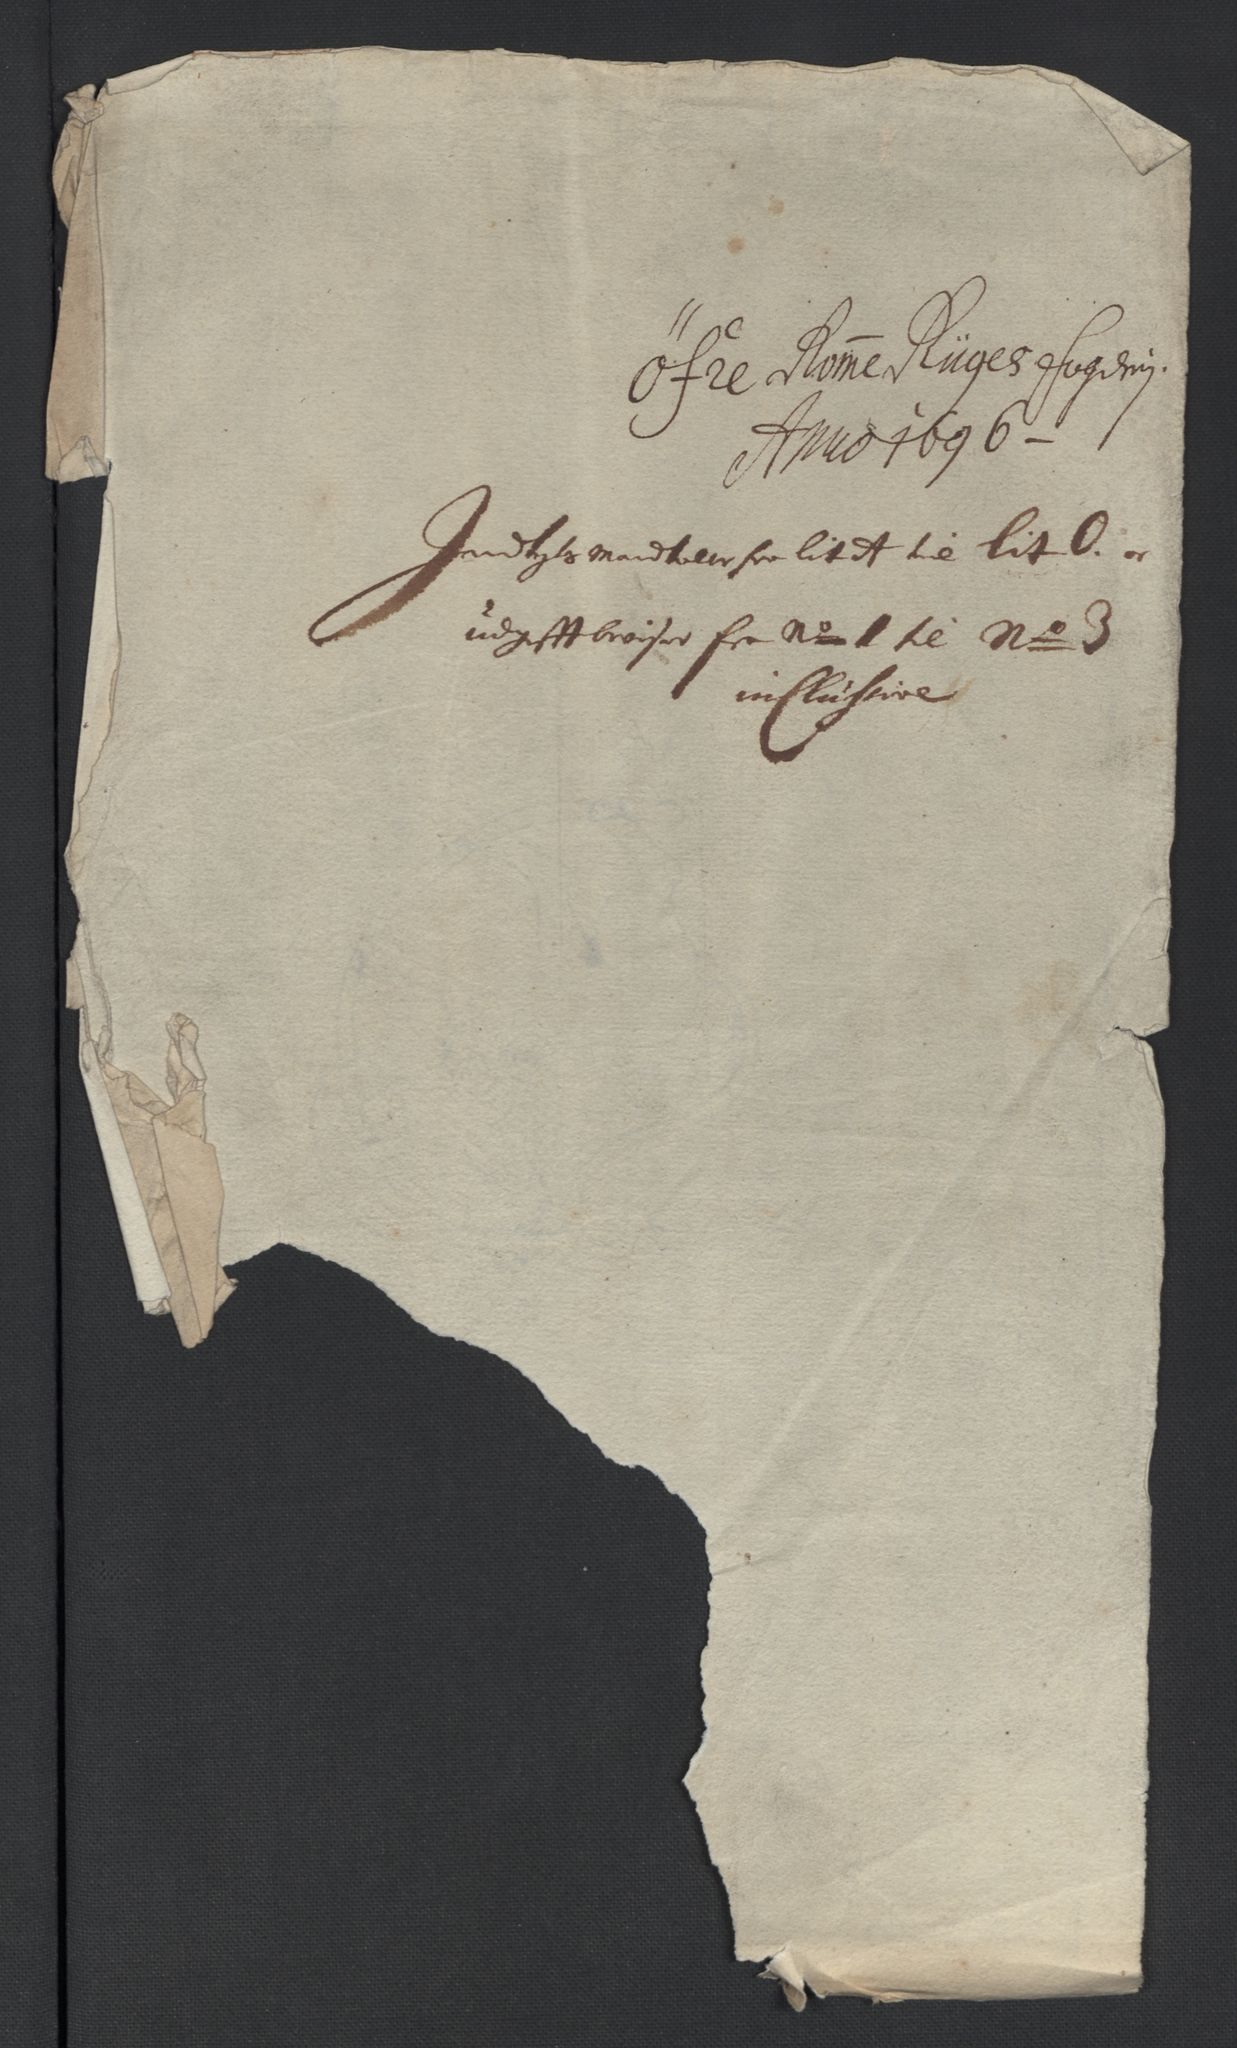 Öfre Rom̄e Rüges ffogdrij.
Anno 1696 –
Indtegts mandtaller fra lit A til lit O. oc
üdgifft beviser fra No 1 til No 3
inClusive